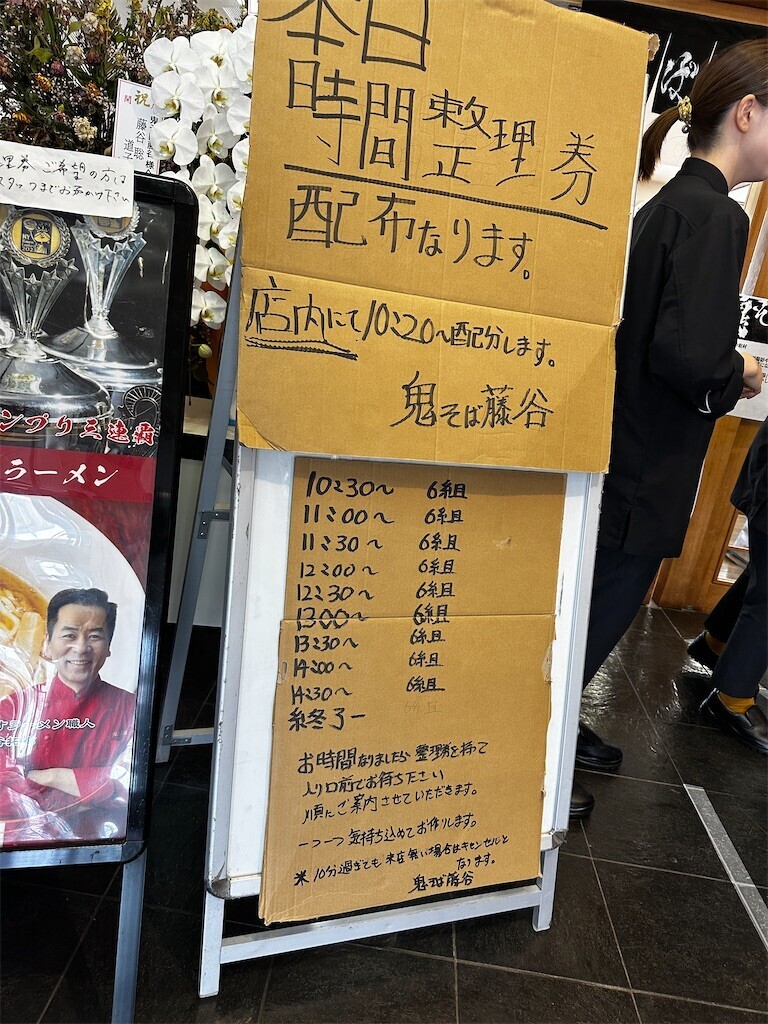 本日
時間整理券
配布なります。
店内にて10:20〜配分します。
鬼そば藤谷
10:30〜 6組
11:00〜 6組
11:30〜 6組
12:00〜 6組
12:30〜 6組
13:00〜 6組
13:30〜 6組
14:00〜 6組
14:30〜 6組
終了ー
お時間なりましたら整理券を持て
入り口前でお待ち下さい
順にご案内させていただきます。
一つ一つ気持ち込めてお作りします。
※10分過ぎても来店無い場合はキャンセルと
なります。
鬼そば藤谷
祝
開
理券ご希望の方は
スタッフまでお声かけ下さい
ンプリ三連覇
ラーメン
ラーメン職人
ば